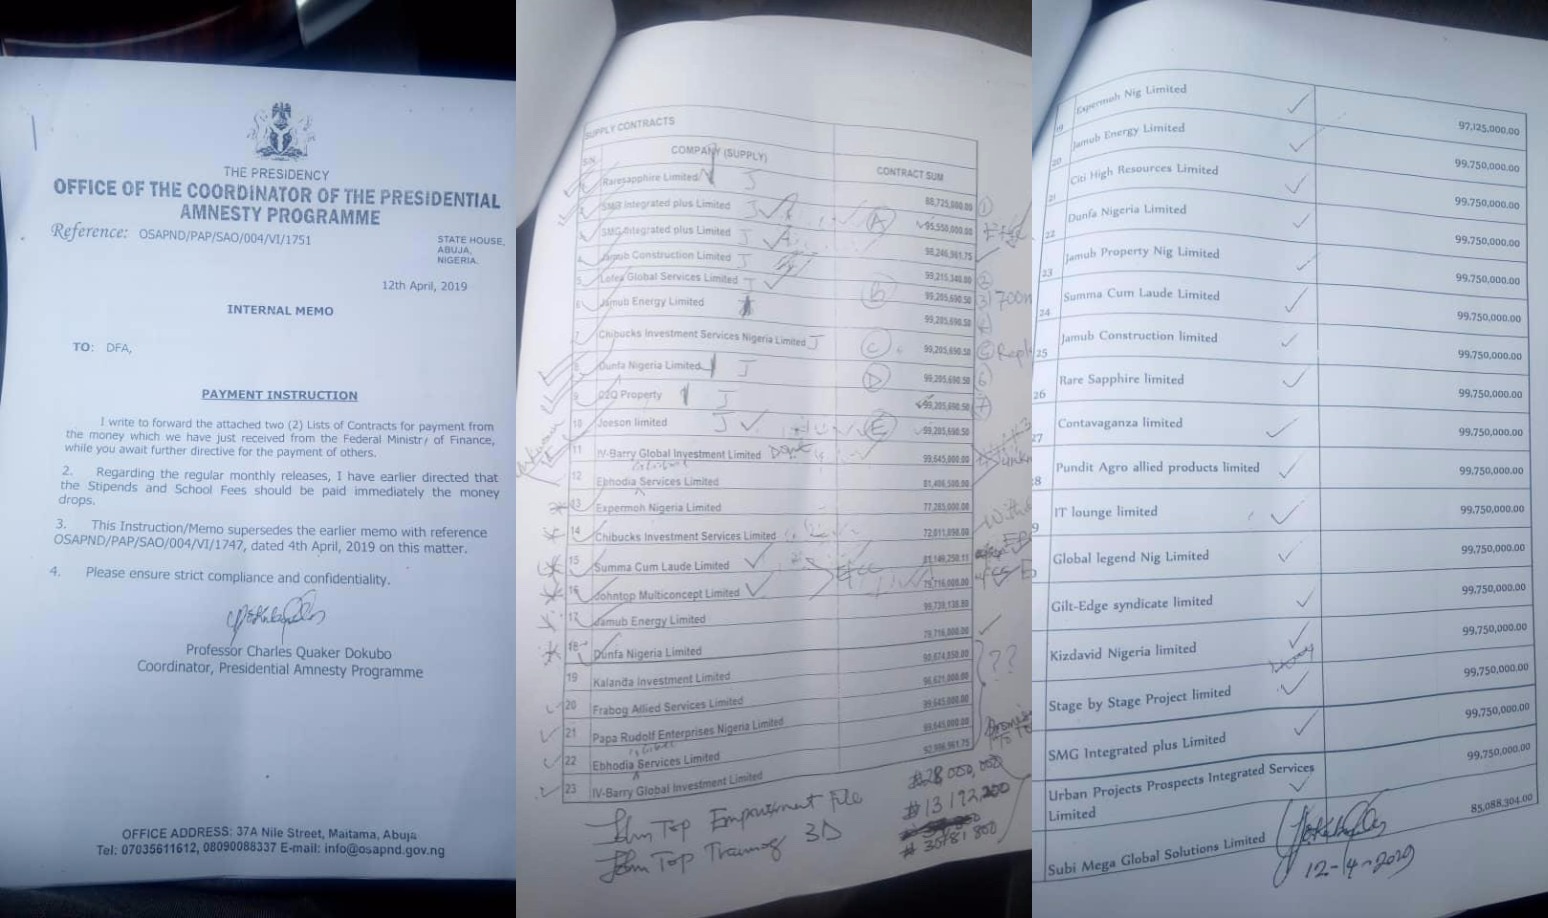 THE PRESIDENCY
OFFICE OF THE COORDINATOR OF THE PRESIDENTIAL
AMNESTY PROGRAMME
Reference: OSAPND/PAP/SAO/004/VI/1751
STATE HOUSE,
ABUJA,
NIGERIA.
12th April, 2019
INTERNAL MEMO
TO: DFA,
PAYMENT INSTRUCTION
I write to forward the attached two (2) Lists of Contracts for payment from
the money which we have just received from the Federal Ministry of Finance,
while you await further directive for the payment of others.
2. Regarding the regular monthly releases, I have earlier directed that
the Stipends and School Fees should be paid immediately the money
drops.
3. This Instruction/Memo supersedes the earlier memo with reference
OSAPND/PAP/SAO/004/VI/1747, dated 4th April, 2019 on this matter.
4. Please ensure strict compliance and confidentiality.
Professor Charles Quaker Dokubo
Coordinator, Presidential Amnesty Programme
OFFICE ADDRESS: 37A Nile Street, Maitama, Abuja
Tel: 07035611612, 08090088337 E-mail: info@osapnd.gov.ng
SUPPLY CONTRACTS
S/N COMPANY (SUPPLY) CONTRACT SUM
Raresapphire Limited J 88,725,000.00 1
SMG Integrated plus Limited J A 95,550,000.00
SMG Integrated plus Limited J 98,246,961.75
4 Jamub Construction Limited J 99,215,340.00 2
5 Lotex Global Services Limited J B 99,205,690.50 3
6 Jamub Energy Limited 99,205,690.50
7 Chibucks Investment Services Nigeria Limited J C 99,205,690.50
8 Dunfa Nigeria Limited J D 99,205,690.50 6
9 O2O Property J 99,205,690.50 7
10 Joeson limited J E 99,205,690.50
11 IV-Barry Global Investment Limited 99,645,000.00
12 Ebhodia Services Limited 81,406,500.00
13 Expermoh Nigeria Limited 77,285,000.00
14 Chibucks Investment Services Limited 72,011,090.00
15 Summa Cum Laude Limited 81,149,250.11
16 Johntop Multiconcept Limited 79,716,000.00
17 Jamub Energy Limited 99,739,138.80
18 Dunfa Nigeria Limited 79,716,000.00
19 Kalanda Investment Limited 90,674,850.00 ??
20 Frabog Allied Services Limited 96,621,000.00
21 Papa Rudolf Enterprises Nigeria Limited 99,645,000.00
22 Ebhodia Services Limited 99,645,000.00
23 IV-Barry Global Investment Limited 92,996,961.75
John Top Empowerment File #28 000,000
John Top Training 3D #13 192,200
19 Expermoh Nig Limited 97,125,000.00
20 Jamub Energy Limited 99,750,000.00
21 Citi High Resources Limited 99,750,000.00
22 Dunfa Nigeria Limited 99,750,000.00
23 Jamub Property Nig Limited 99,750,000.00
24 Summa Cum Laude Limited 99,750,000.00
25 Jamub Construction limited 99,750,000.00
26 Rare Sapphire limited 99,750,000.00
27 Contavaganza limited 99,750,000.00
8 Pundit Agro allied products limited 99,750,000.00
9 IT lounge limited 99,750,000.00
Global legend Nig Limited 99,750,000.00
Gilt-Edge syndicate limited 99,750,000.00
Kizdavid Nigeria limited 99,750,000.00
Stage by Stage Project limited 99,750,000.00
SMG Integrated plus Limited 99,750,000.00
Urban Projects Prospects Integrated Services
Limited 99,750,000.00
Subi Mega Global Solutions Limited 85,088,304.00
12-4-2019